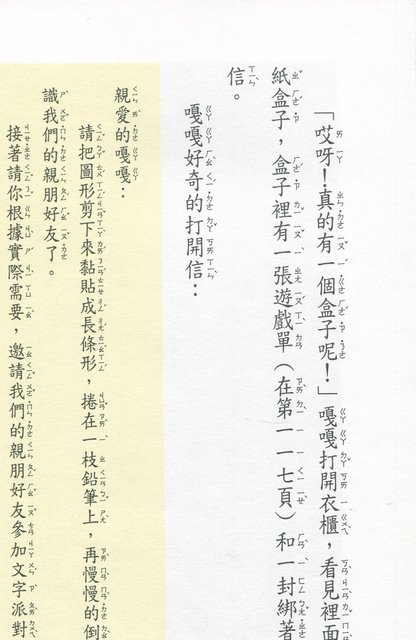 「哎呀！真的有一個盒子呢！」嘎嘎打開衣櫃，看見裡面
紙盒子，盒子裡有一張遊戲單（在第一一七頁）和一封綁著
信。
嘎嘎好奇的打開信：
親愛的嘎嘎：
請把圖形剪下來黏貼成長條形，捲在一枝鉛筆上，再慢慢的倒
識我們的親朋好友了。
接著請你根據實際需要，邀請我們的親朋好友參加文字派對